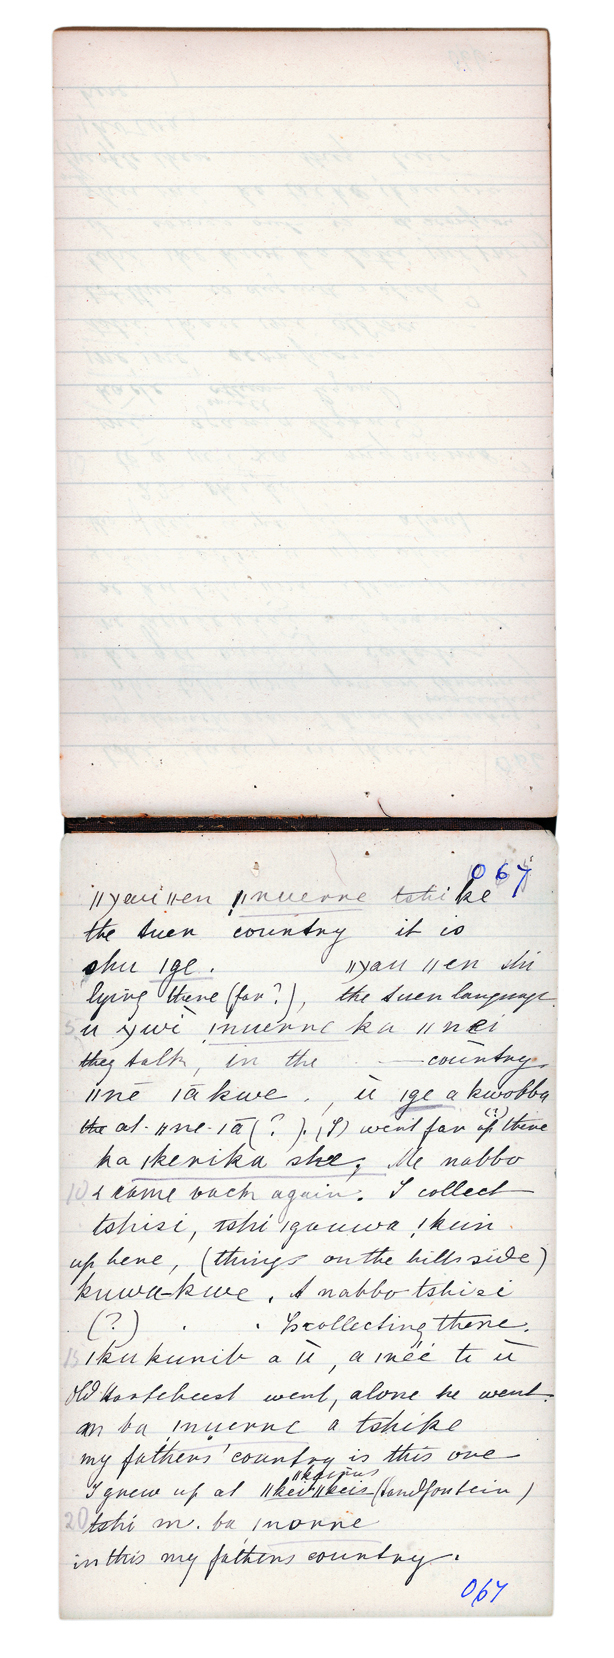 067
ǁχau ǁen ǃnuerre tshi ke
the Auen country it is
shu ǀge. ǁχau ǁen shi
lying there (far?), the Auen language
5 u χwi ǃnuerre ka ǁnei
they talk, in the —— country
ǁnē ǀā kwe., ū ǀge a kwobba
the at ǁne ǀā (?). (I) went far up (?) there
ka ǀkerika she; Me nabbo
10 & came back again. I collect
tshisi, tshi ǀgauwa ǃkuin
up here, (things on the hills side)
kuwa-kwe. A nabbo tshisi
(?) . . Is collecting there.
15 ǀku kunib a ū, a ǀnēē te ū
Old Hartebeest went, alone he went.
m ba ǃnuerre a tshike
my fathers' country is this one
I grew up at ǁkei ǁkeis (Sandfontein)
20 tshi m. ba ǃnorre
in this my fathers country.
067